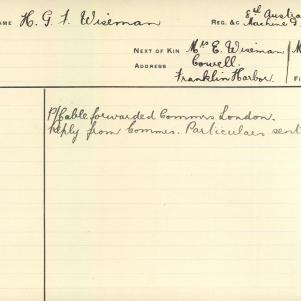 NAME H. G. F. Wiseman
REG. &C. 8th Austra
Machine G
NEXT OF KIN Mrs E. Wiseman
ADDRESS Cowell.
Franklin Harbor.
P/Cable forwarded Commrs London.
Reply from Commrs. Particulars sent